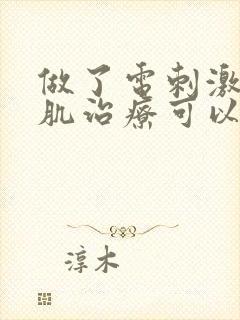 做了电刺激
肌治疗可以
淳木